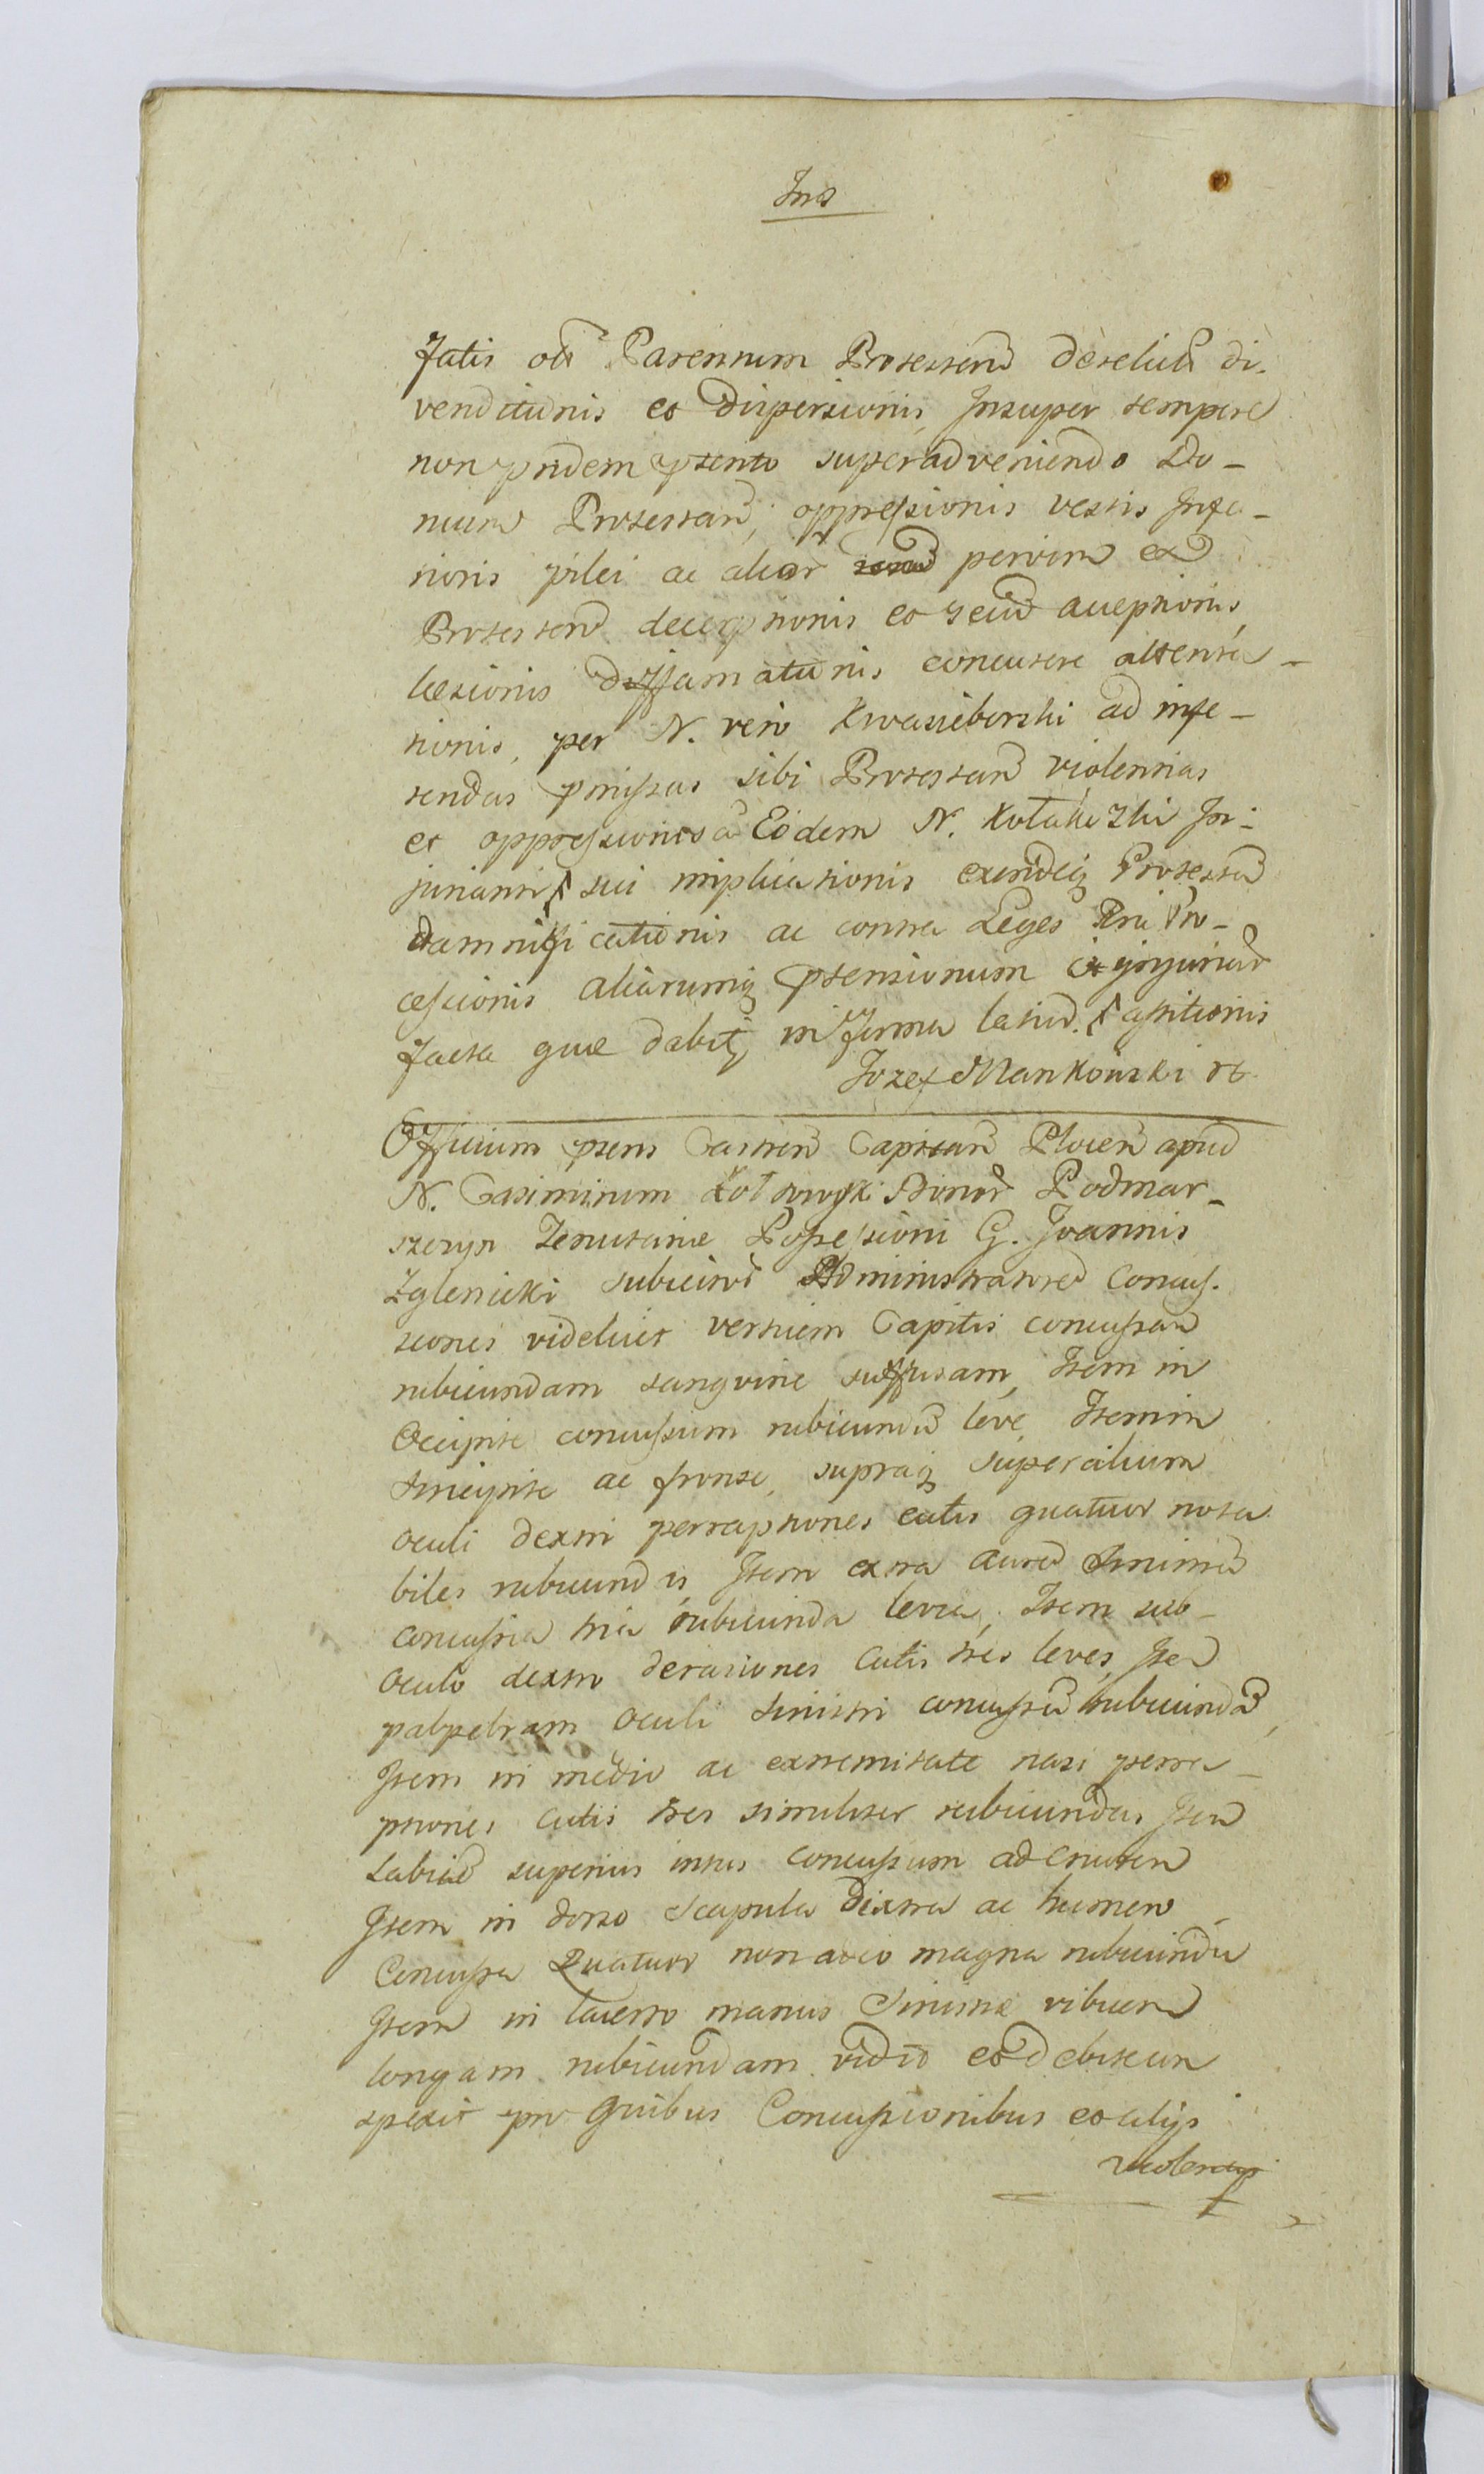 Ins
fatis olt Parentum Protestend derelict di-
venditionis et dispersionis, Insuper tempore
non pridem psento superadveniendo Do-
mum Protestand, oppressionis vestis Infe-
rioris pilei ac aliar pervim ex
Protestend decerptionis et secud acceptionis,
laesionis diffamationis concutere attenta-
tionis, per N. vero Kwasieborski ad infe-
rendas pmissas sibi Protestand violentias
et oppressiones a Eodem N. Kołakezki In-
juriantis sui implicationis exindeq Protestan
damnificationis ac contra Leges Pro-
cessionis aliarumq ptensionum et injuriar
facta quae dabitj in forma latiud. assitionis
Jozef Mankowski
Officium psens Castren Capitan Plocen apud
N. Casimirum Podmar-
szczyn Tenutariae Possessioni G. Joannis
Zglenicki subiecint Administratored Concus-
siones videlicet verticem Capitis concussam
rubicundam sangvine suffusam, Item in
Occipite concussum rubicundu leve, Item in
Sincipite ac fronte, supraq supercilium
oculi dextri perraptiones cutis quatuor nota
biles rubicundas, Item extra aured sinistrd
concussa tria rubicunda levia, Item sub-
oculo dextro derasiones cutis tres leves, Ited
palpebram oculi sinistri concussd rubicundd,
Item in medio ac extremitate nasi perra-
ptiones cutis tres similiter rubicundas, Item
Labiud superius intus concussum ad cruorem
Item in dorso scapula dextra ac humero
Concussa Quatuor non adeo magna rubicunda
Item in lacerto manus Sinistrae vibicem
longam rubicundam vidit et debite con
spexit pro quibus Concussionibus et alijs
violentijs